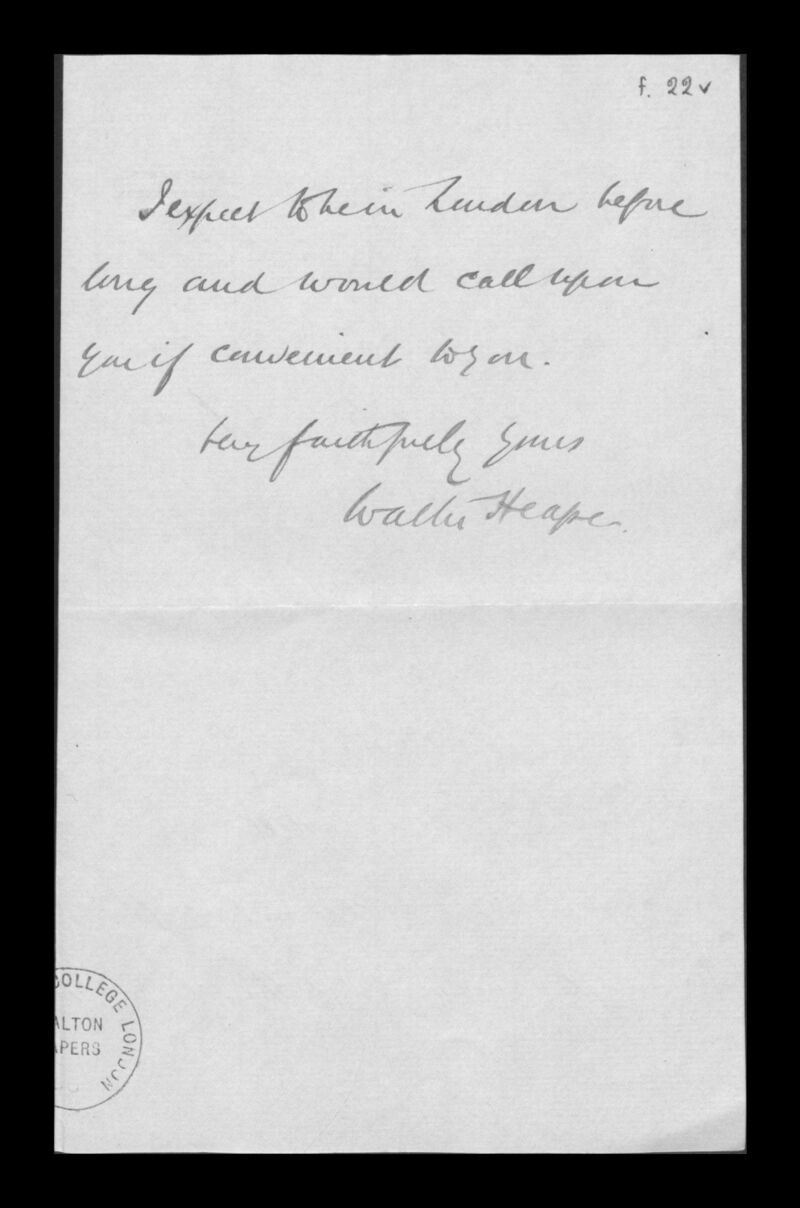 f. 22v
I expect to be in London before
long and would call upon
you if convenient to you.
Very faithfully yours
Walter Heape
COLLEGE LONDON
ALTON
APERS